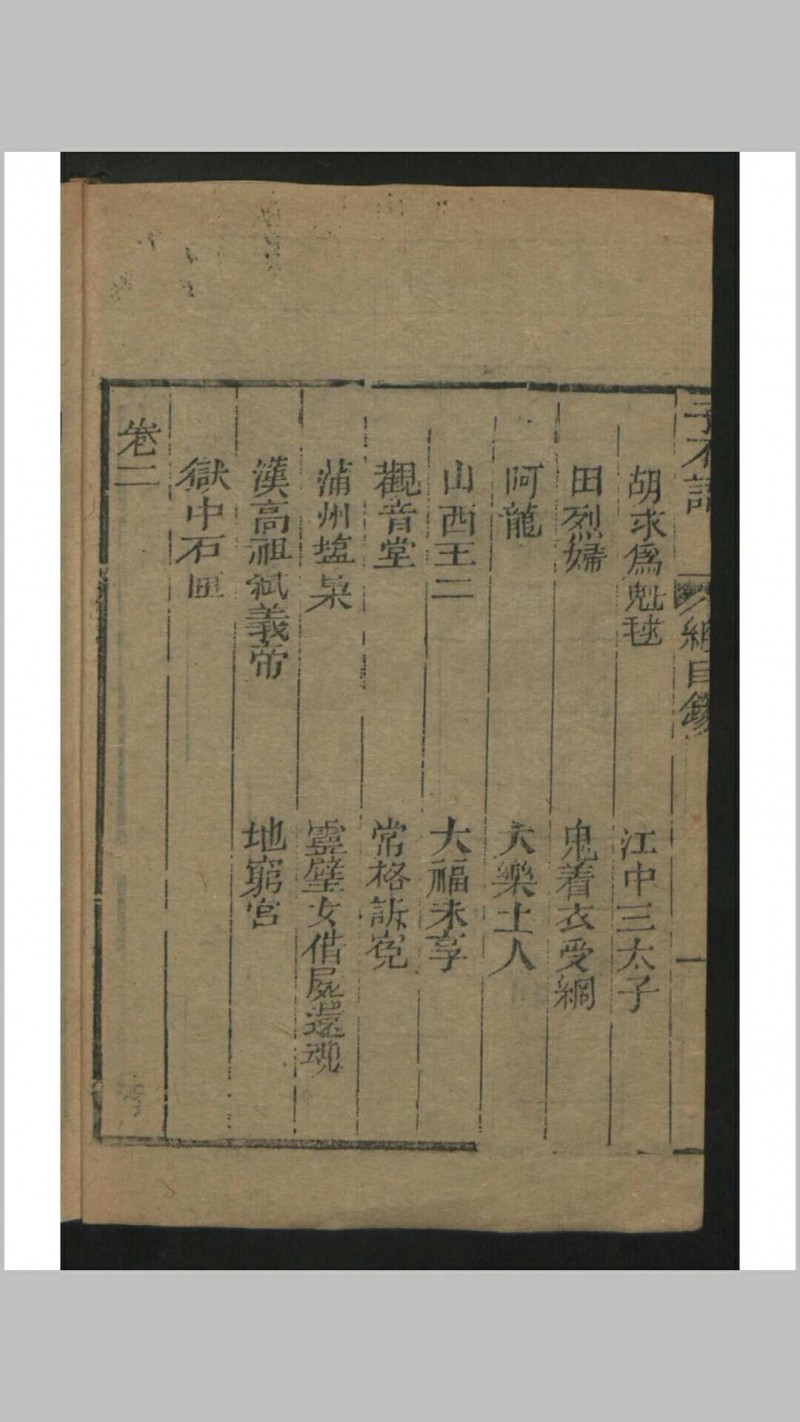 子不語 總目錄 一
胡求爲鬼毬 江中三太子
田烈婦 鬼着衣受網
阿龍 大樂上人
山西王二 大福未享
觀音堂 常格訴寃
蒲州塩梟 靈璧女借屍還魂
漢高祖弒義帝 地窮宮
獄中石匣
卷二